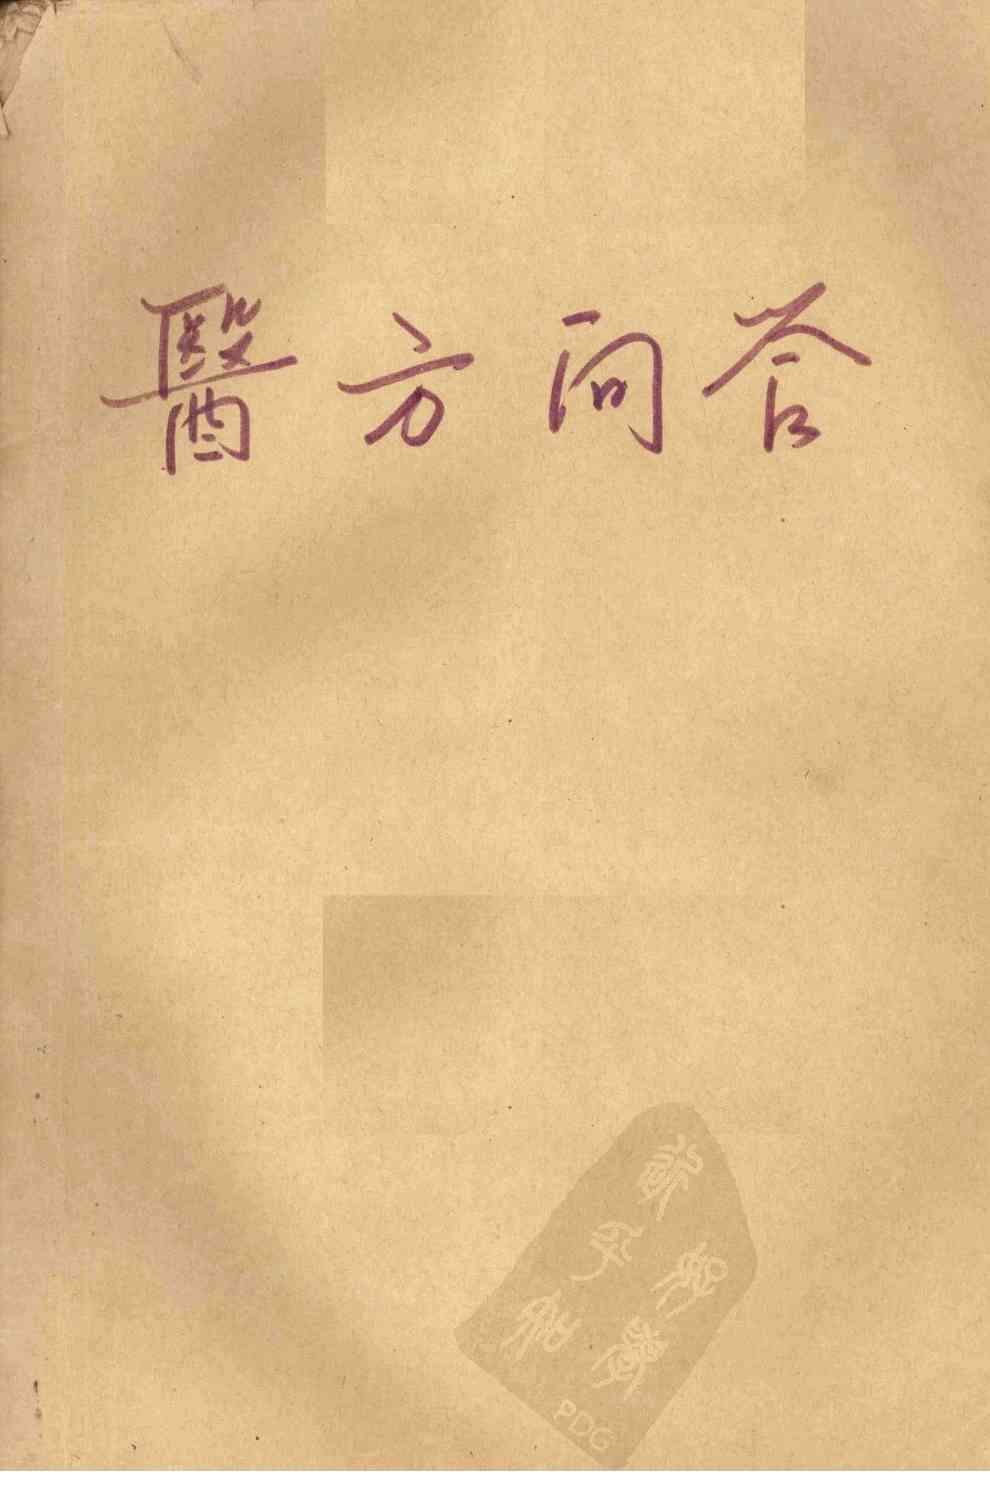 醫方问答
PDG